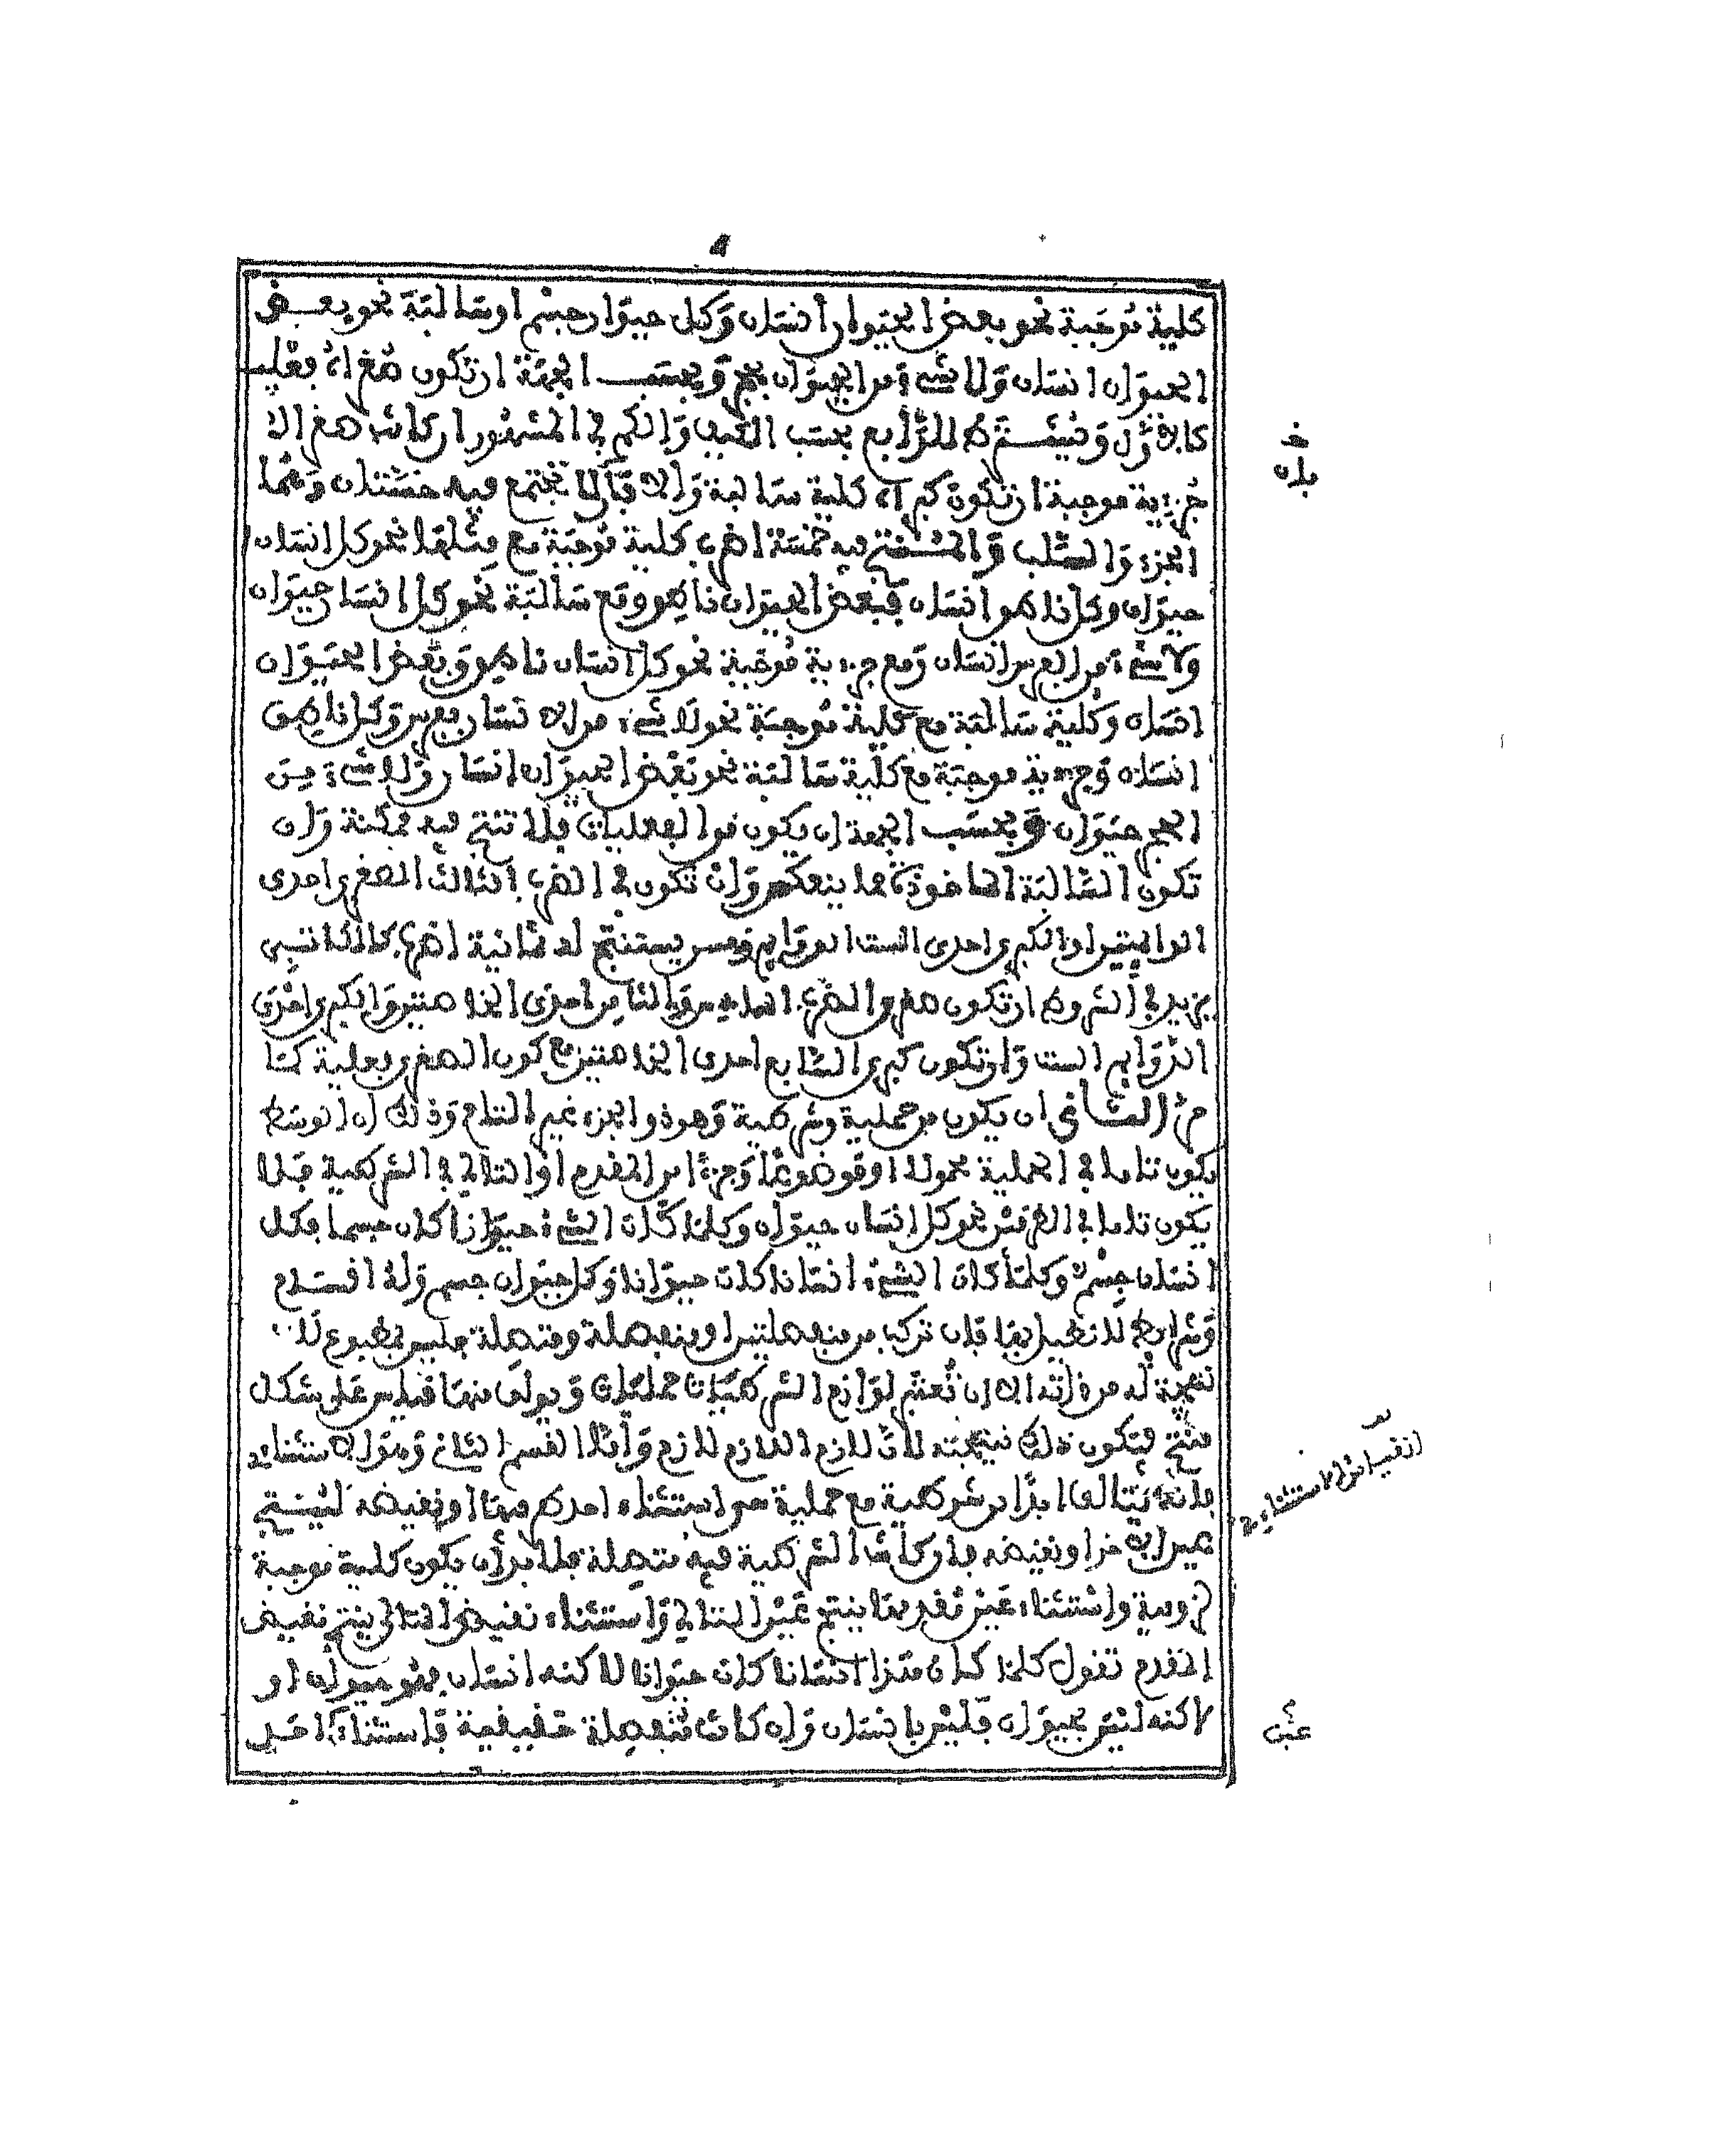 كلية موجبة نحو بعض الحيوان إنسان وكل حيوان جسم أو سالبة نحو بعض
الحيوان إنسان ولا شيء من الحيوان بحجر وبحسب الجهة أن تكون صغراه فعلية
كالأول ويشترط للرابع بحسب الكيف والكم في المشهور إن كانت صغراه
جزئية موجبة أن تكون كبراه كلية سالبة وإلا فألا تجتمع فيه خستان وهما
الجزء والسلب والمنتج فيه خمسة أضرب كلية موجبة مع مثلها نحو كل إنسان
حيوان وكل ناطق هو إنسان فبعض الحيوان ناطق ومع سالبة نحو كل إنسان حيوان
ولا شيء من الفرس إنسان ومع جزئية موجبة نحو كل إنسان ناطق وبعض الحيوان
إنسان وكلية سالبة مع كلية موجبة نحو لا شيء من الإنسان بفرس وكل ناطق
إنسان وجزئية موجبة مع كلية سالبة نحو بعض الحيوان إنسان ولا شيء من
الحجر حيوان وبحسب الجهة أن يكون من الفعليات فلا تنتج فيه ممكنة وأن
تكون السالبة المأخوذة مما ينعكس وأن تكون في الضرب الثالث الصغرى إحدى
الدوائم أو الكبرى إحدى الست الدوائم ومن يستنتج له ثمانية أضرب كالكاتبي
يزيد في الشروط أن تكون صغرى الضرب السادس والثامن إحدى الخاصتين والكبرى إحدى
الدوائم الست وأن تكون كبرى السابع إحدى الخاصتين مع كون الصغرى فعلية كما
مر الثاني أن يكون من حملية وشرطية وهو ذو الجزء غير التام وذلك لأن الوسط
يكون تاما في الحملية محمولا أو موضوعا وجزءا من المقدم أو التالي في الشرطية فلا
يكون تاما في الطرفين نحو كل إنسان حيوان وكلما كان الشيء حيوانا كان جسما فكل
إنسان جسم وكلما كان الشيء إنسانا كان حيوانا وكل حيوان جسم وله أقسام
وشرائط لا نطيل بها فإن تركب من منفصلتين أو منفصلة ومتصلة فليس بمطبوع لا
نتيجة له من ذاته إلا أن تعتبر لوازم الشرطيات حمليات ويؤلف منها قياس على شكل
منتج فيكون ذلك نتيجته لأن لازم اللازم لازم وأما القسم الثاني وهو الاستثنائي
فإنه يتألف أبدا من شرطية مع حملية هي استثناء أحد طرفيها أو نقيضه لينتج
عين الآخر أو نقيضه فإن كانت الشرطية فيه متصلة فلا بد أن يكون كلية موجبة
لزومية واستثناء عين مقدمها ينتج عين التالي واستثناء نقيض التالي ينتج نقيض
المقدم تقول كلما كان هذا إنسانا كان حيوانا لاكنه إنسان فهو حيوان أو
لاكنه ليس بحيوان فليس بإنسان وإن كانت منفصلة حقيقية فاستثناء أحد
القياس الاستثنائي